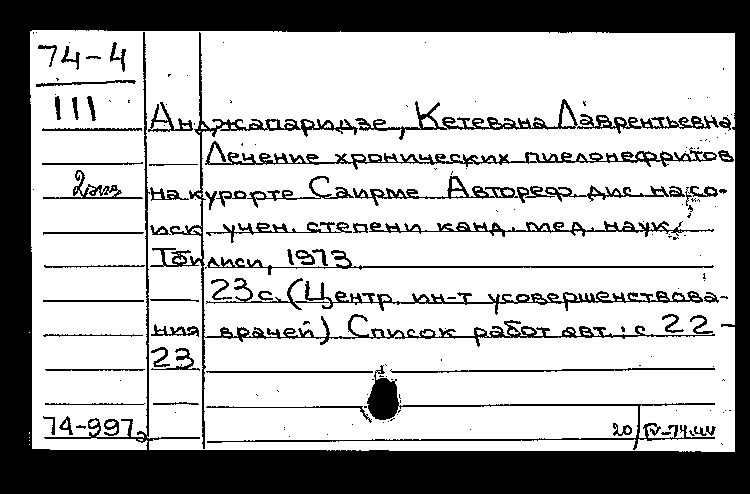 74-4
III
Анджапаридзе, Кетевана Лаврентьевна
Лечение хронических пиелонефритов
2 экз
на курорте Саирме Автореф. дис. на со-
иск. учен. степени канд. мед. наук.
Тбилиси, 1973.
23 с. (Центр. ин-т усовершенствова-
ния врачей) Список работ авт.: с 22-
23
74-997а
20/IV-74